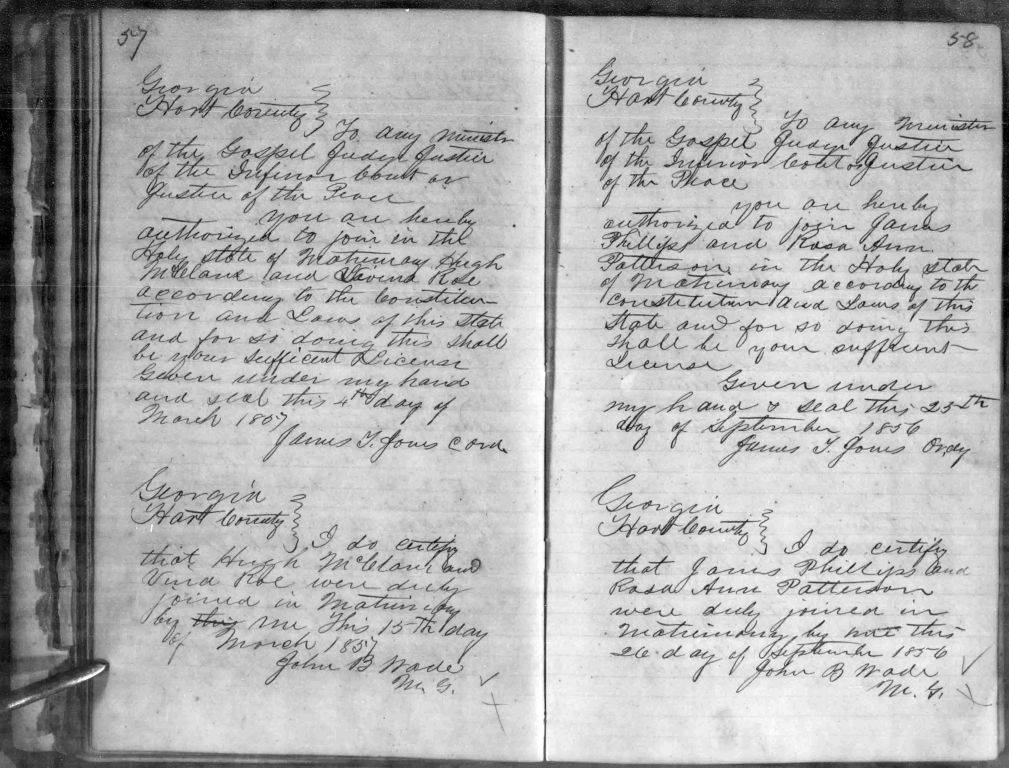 57
Georgia
Hart County
To any minister
of the Gospel Judge Justice
of the Inferior Court or
Justice of the Peace
you are hereby
authorized to join in the
Holy state of Matrimony Hugh
McClane and Lvina Roe
according to the Constitu-
tion and Laws of this State
and for so doing this shall
be your sufficent License
Given under my hand
and seal this 4th day of
March 1857
James T. Jones C Ord.
Georgia
Hart County
I do certify
that Hugh McClane and
Vina Roe were duly
joined in Matrimony
by this me This 15th day
of March 1857
John B Wade
M. G.
58
Georgia
Hart County
To any Minister
of the Gospel Judge Justice
of the Inferior Court or Justice
of the Peace
you are hereby
authorized to join James
Phillips and Rosa Ann
Patterson in the Holy state
of Matrimony according to the
constitution and Laws of this
State and for so doing this
shall be your sufficient
License
Given under
my hand & seal this 25th
day of September 1856
James T. Jones Ordy
Georgia
Hart County
I do certify
that James Phillips and
Rosa Ann Patterson
were duly joined in
Matrimony by me this
26 day of September 1856
John B Wade
M. G.